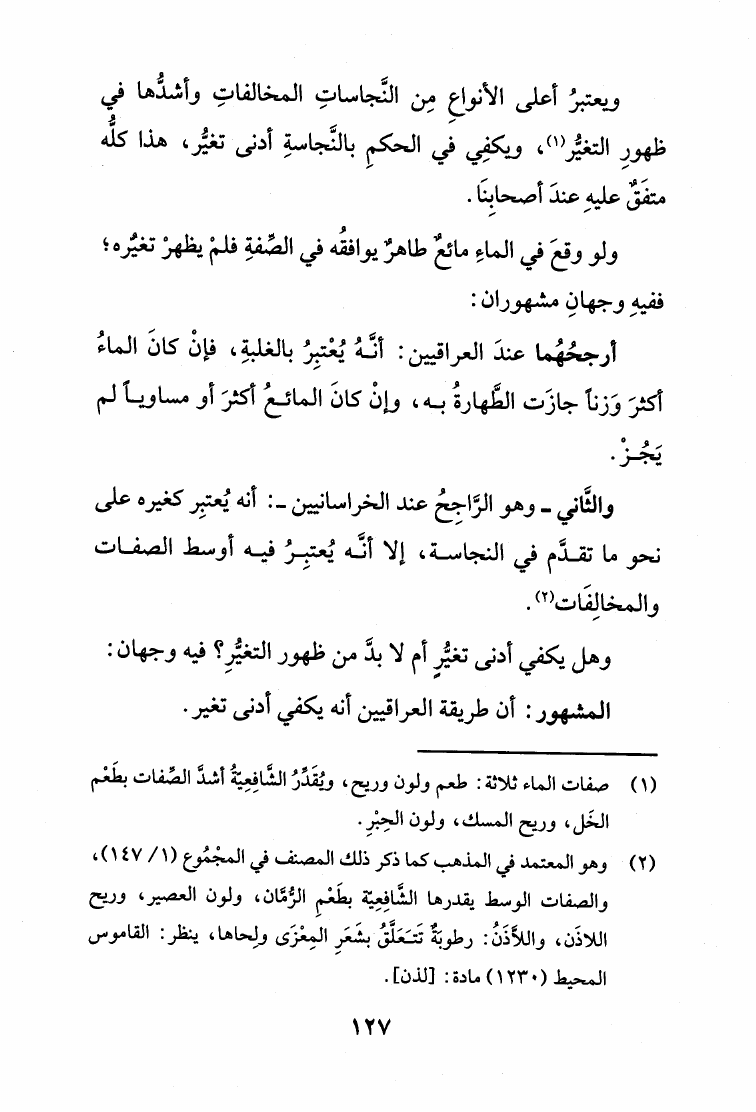 ويعتبرُ أعلى الأنواعِ مِن النَّجاساتِ المخالفاتِ وأشدُّها في
ظهورِ التغيُّر(١)، ويكفِي في الحكمِ بالنَّجاسةِ أدنى تغيُّر، هذا كلُّه
متفَقٌ عليهِ عندَ أصحابِنَا.
ولو وقعَ في الماءِ مائعٌ طاهرٌ يوافقُه في الصِّفةِ فلمْ يظهرْ تغيُّره؛
ففيهِ وجهانِ مشهوران:
أرجحُهُما عندَ العراقيين: أنَّهُ يُعْتبرُ بالغلبةِ، فإنْ كانَ الماءُ
أكثرَ وَزناً جازَت الطَّهارةُ به، وإنْ كانَ المائعُ أكثرَ أو مساوياً لم
يَجُزْ.
والثَّاني - وهو الرَّاجِحُ عند الخراسانيين -: أنه يُعتبِر كغيره على
نحو ما تقدَّم في النجاسة، إلا أنَّه يُعتبِرُ فيه أوسط الصفات
والمخالِفَات(٢).
وهل يكفي أدنى تغيُّرٍ أم لا بدَّ من ظهور التغيُّرِ؟ فيه وجهان:
المشهور: أن طريقة العراقيين أنه يكفي أدنى تغير.
(١) صفات الماء ثلاثة: طعم ولون وريح، ويُقَدِّرُ الشَّافِعِيّةُ أشدَّ الصِّفات بطَعْم
الخَل، وريح المسك، ولون الحِبْرِ.
(٢) وهو المعتمد في المذهب كما ذكر ذلك المصنف في المجْمُوع (١/ ١٤٧)،
والصفات الوسط يقدرها الشَّافِعِيّة بطَعْمِ الرُّمَّان، ولون العصير، وريح
اللاذَن، واللأَذَنُ: رطوبةٌ تَتَعَلَّقُ بشَعَرِ المِعْزَى ولِحاها، ينظر: القاموس
المحيط (١٢٣٠) مادة: [لذن].
١٢٧